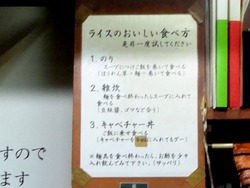 ライスのおいしい食べ方
是非一度試してください
1. のり
スープにつけご飯を巻いて食べる
(ほうれん草+麺+巻いて食べる)
2. 雑炊
麺を食べ終わったらスープに入れて
食べる
(豆板醤、ゴマなど合う)
3. キャベチャー丼
ご飯に乗せ食べる
(キャベチャーを
に入れてるデー)
※麺品を食べ終わったら、お酢をタテ
入れ飲んでみて下さい。(サッパリ)
すので
ます